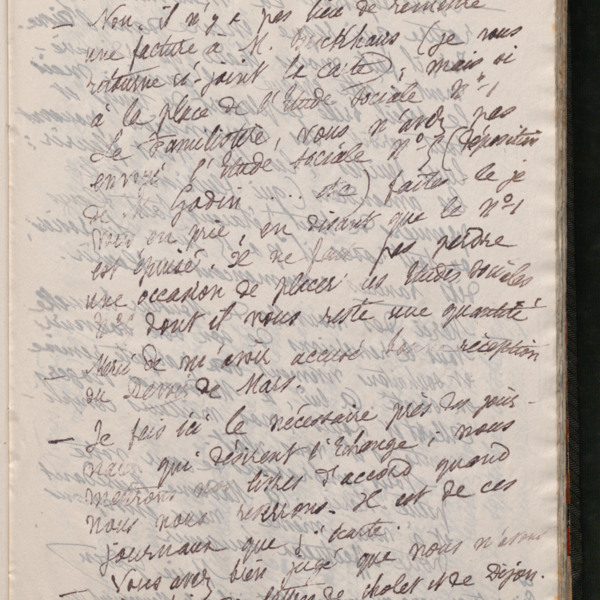 — Non, il n'y a pas lieu de remettre
une facture à M. Buckhaus (je vous
retourne ci-joint la carte); mais si
à la place de l'Etude Sociale Nº 1
Le Familistère, vous n'avez pas
envoyé l'Etude Sociale Nº 2 (Déposition
de M. Godin ... etc) faites-le je
vous en prie, en disant que le Nº 1
est épuisé. Il ne faut pas perdre
une occasion de placer les Etudes Sociales
Nº 2 dont il nous reste une quantité
— Merci de m'avoir accusé réception
du Devoir de Mars.
— Je fais ici le nécessaire près des jour-
naux qui désirent l'échange; nous
mettrons nos listes d'accord quand
nous nous reverrons. Il est de ces
journaux que j'écarte.
— Vous avez bien jugé que nous n'avons
de Cholet et de Dijon.